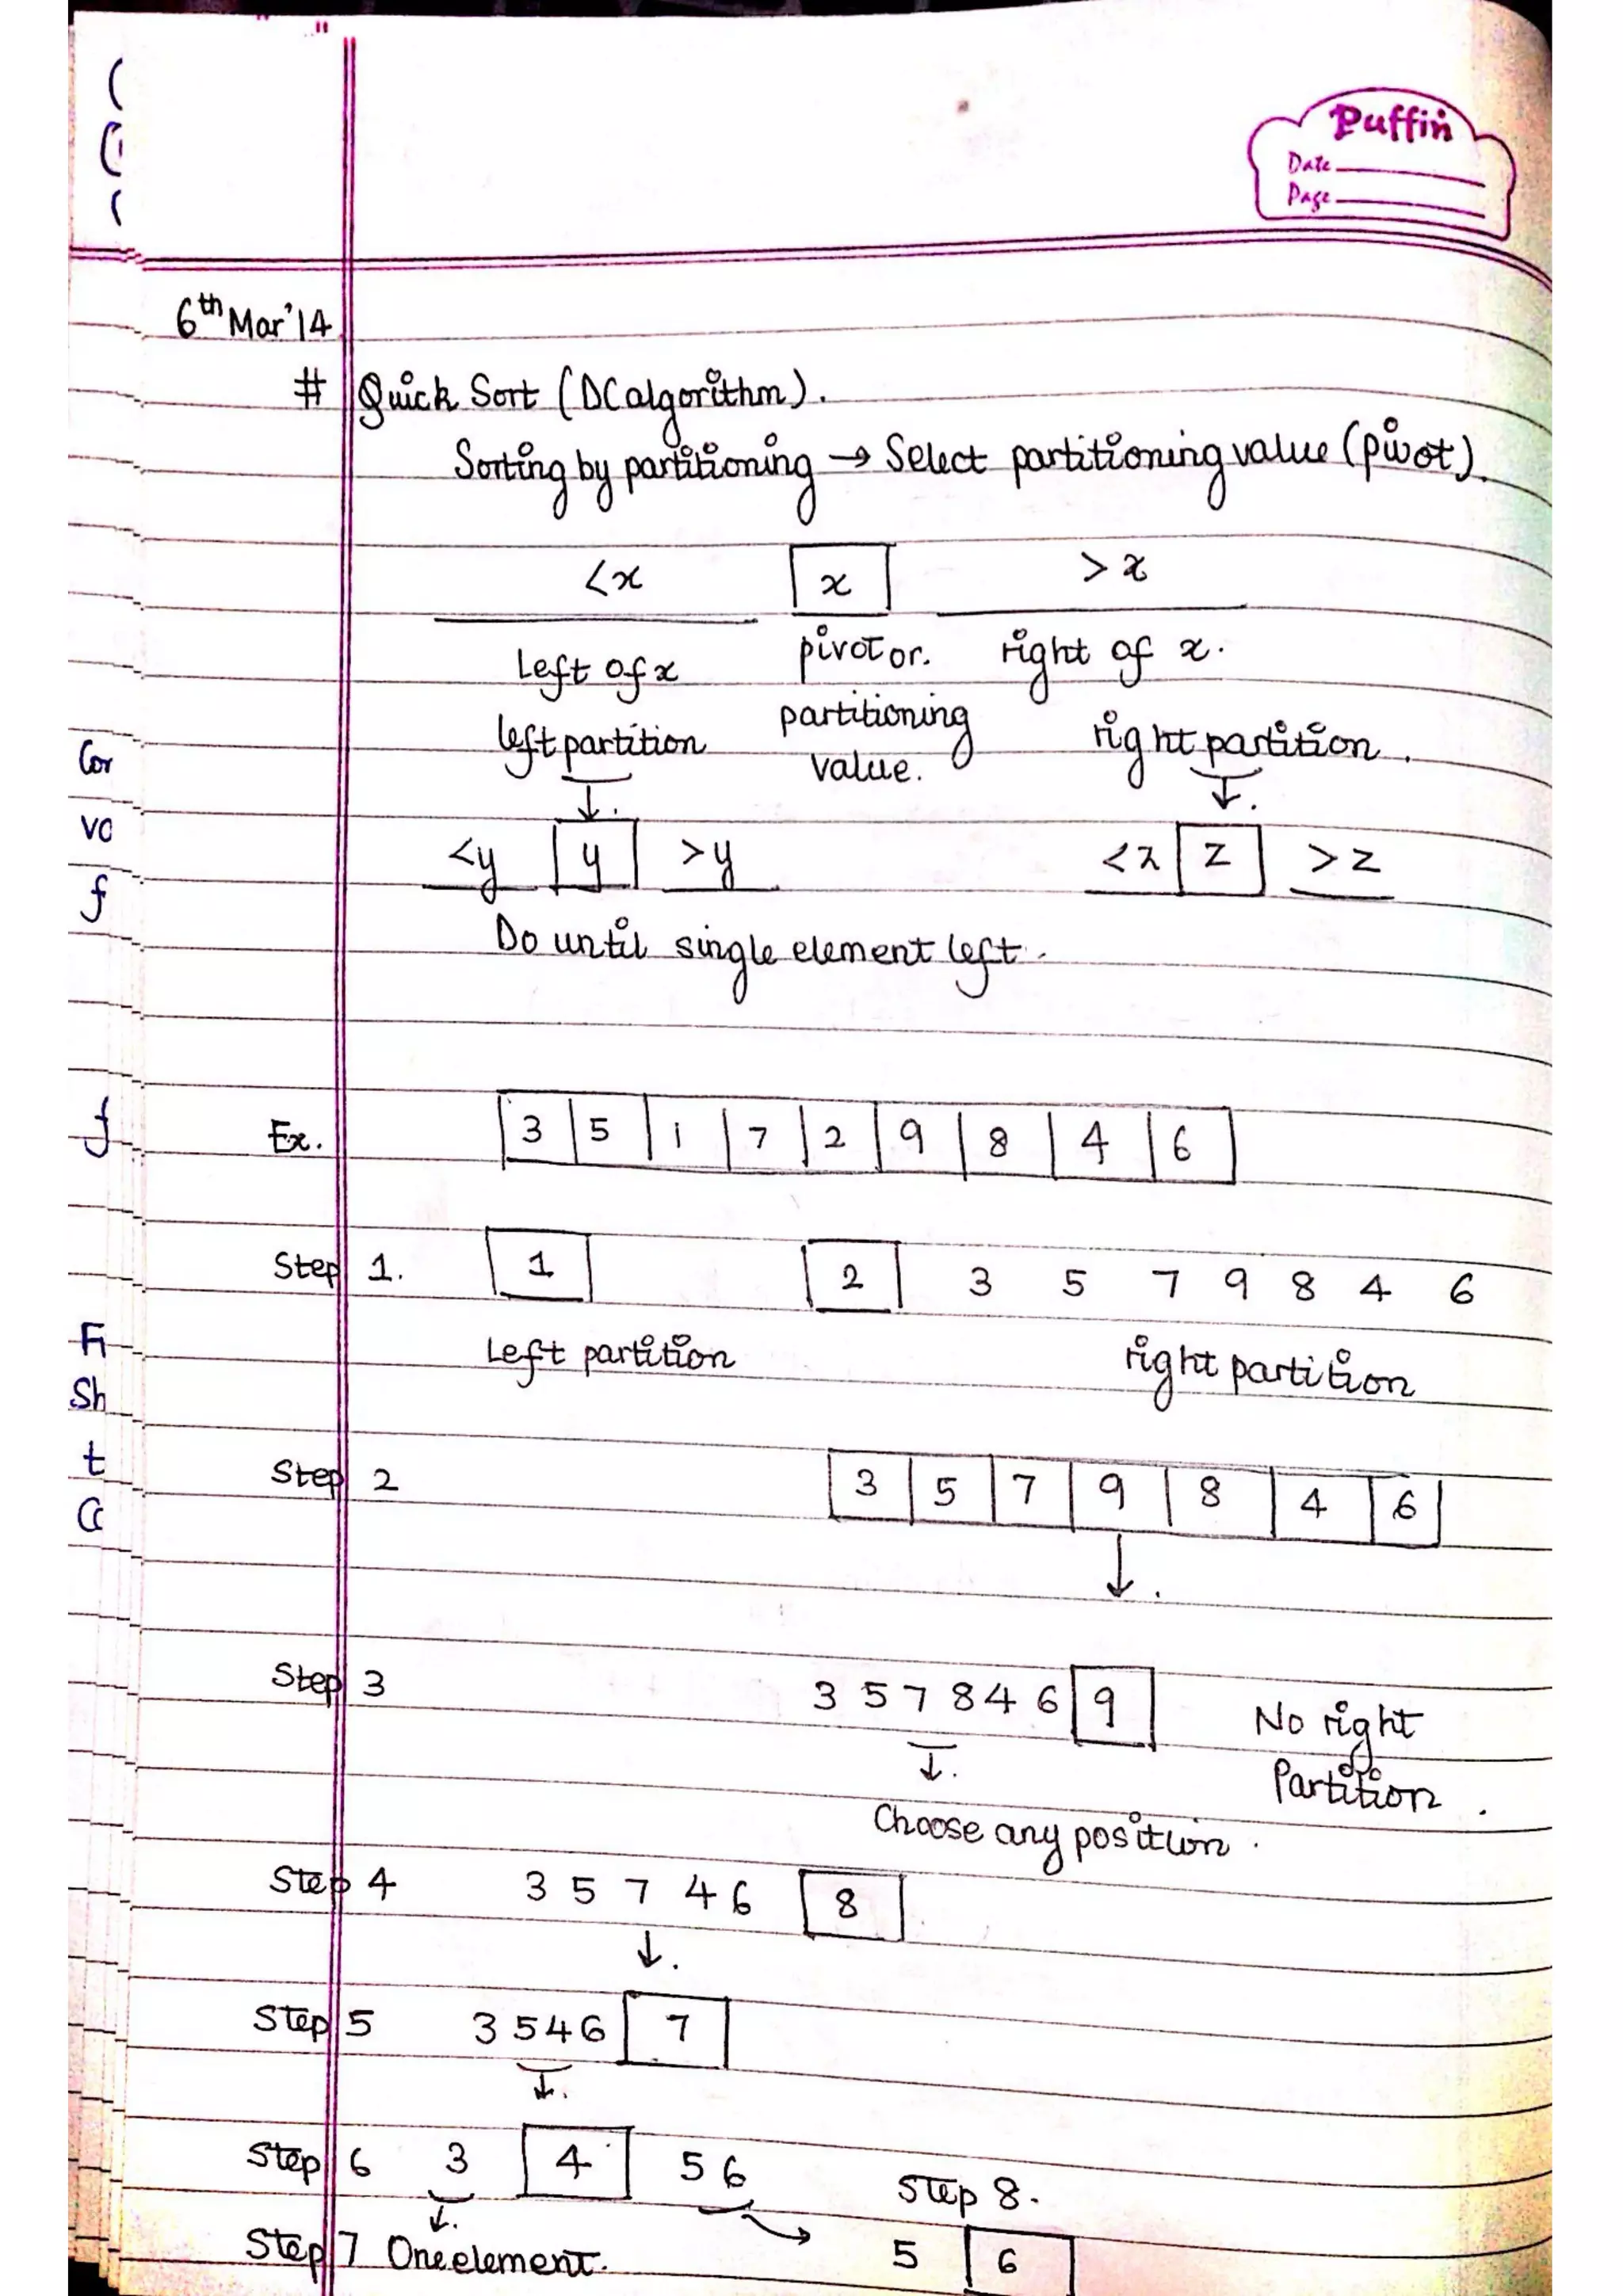 Puffin
Date
Page
6th Mar'14
# Quick Sort (DC algorithm).
Sorting by partitioning → Select partitioning value (pivot).
<x x >x
Left of x pivot or. right of x.
left partition partitioning value. right partition.
<y y >y <z z >z
Do until single element left.
Ex. 3 5 1 7 2 9 8 4 6
Step 1. 1 2 3 5 7 9 8 4 6
Left partition right partition
Step 2 3 5 7 9 8 4 6
Step 3 3 5 7 8 4 6 9 No right Partition.
Choose any position.
Step 4 3 5 7 4 6 8
Step 5 3 5 4 6 7
Step 6 3 4 5 6 Step 8.
Step 7 One element. 5 6
Cor
vo
f
f
Fi
Sh
t